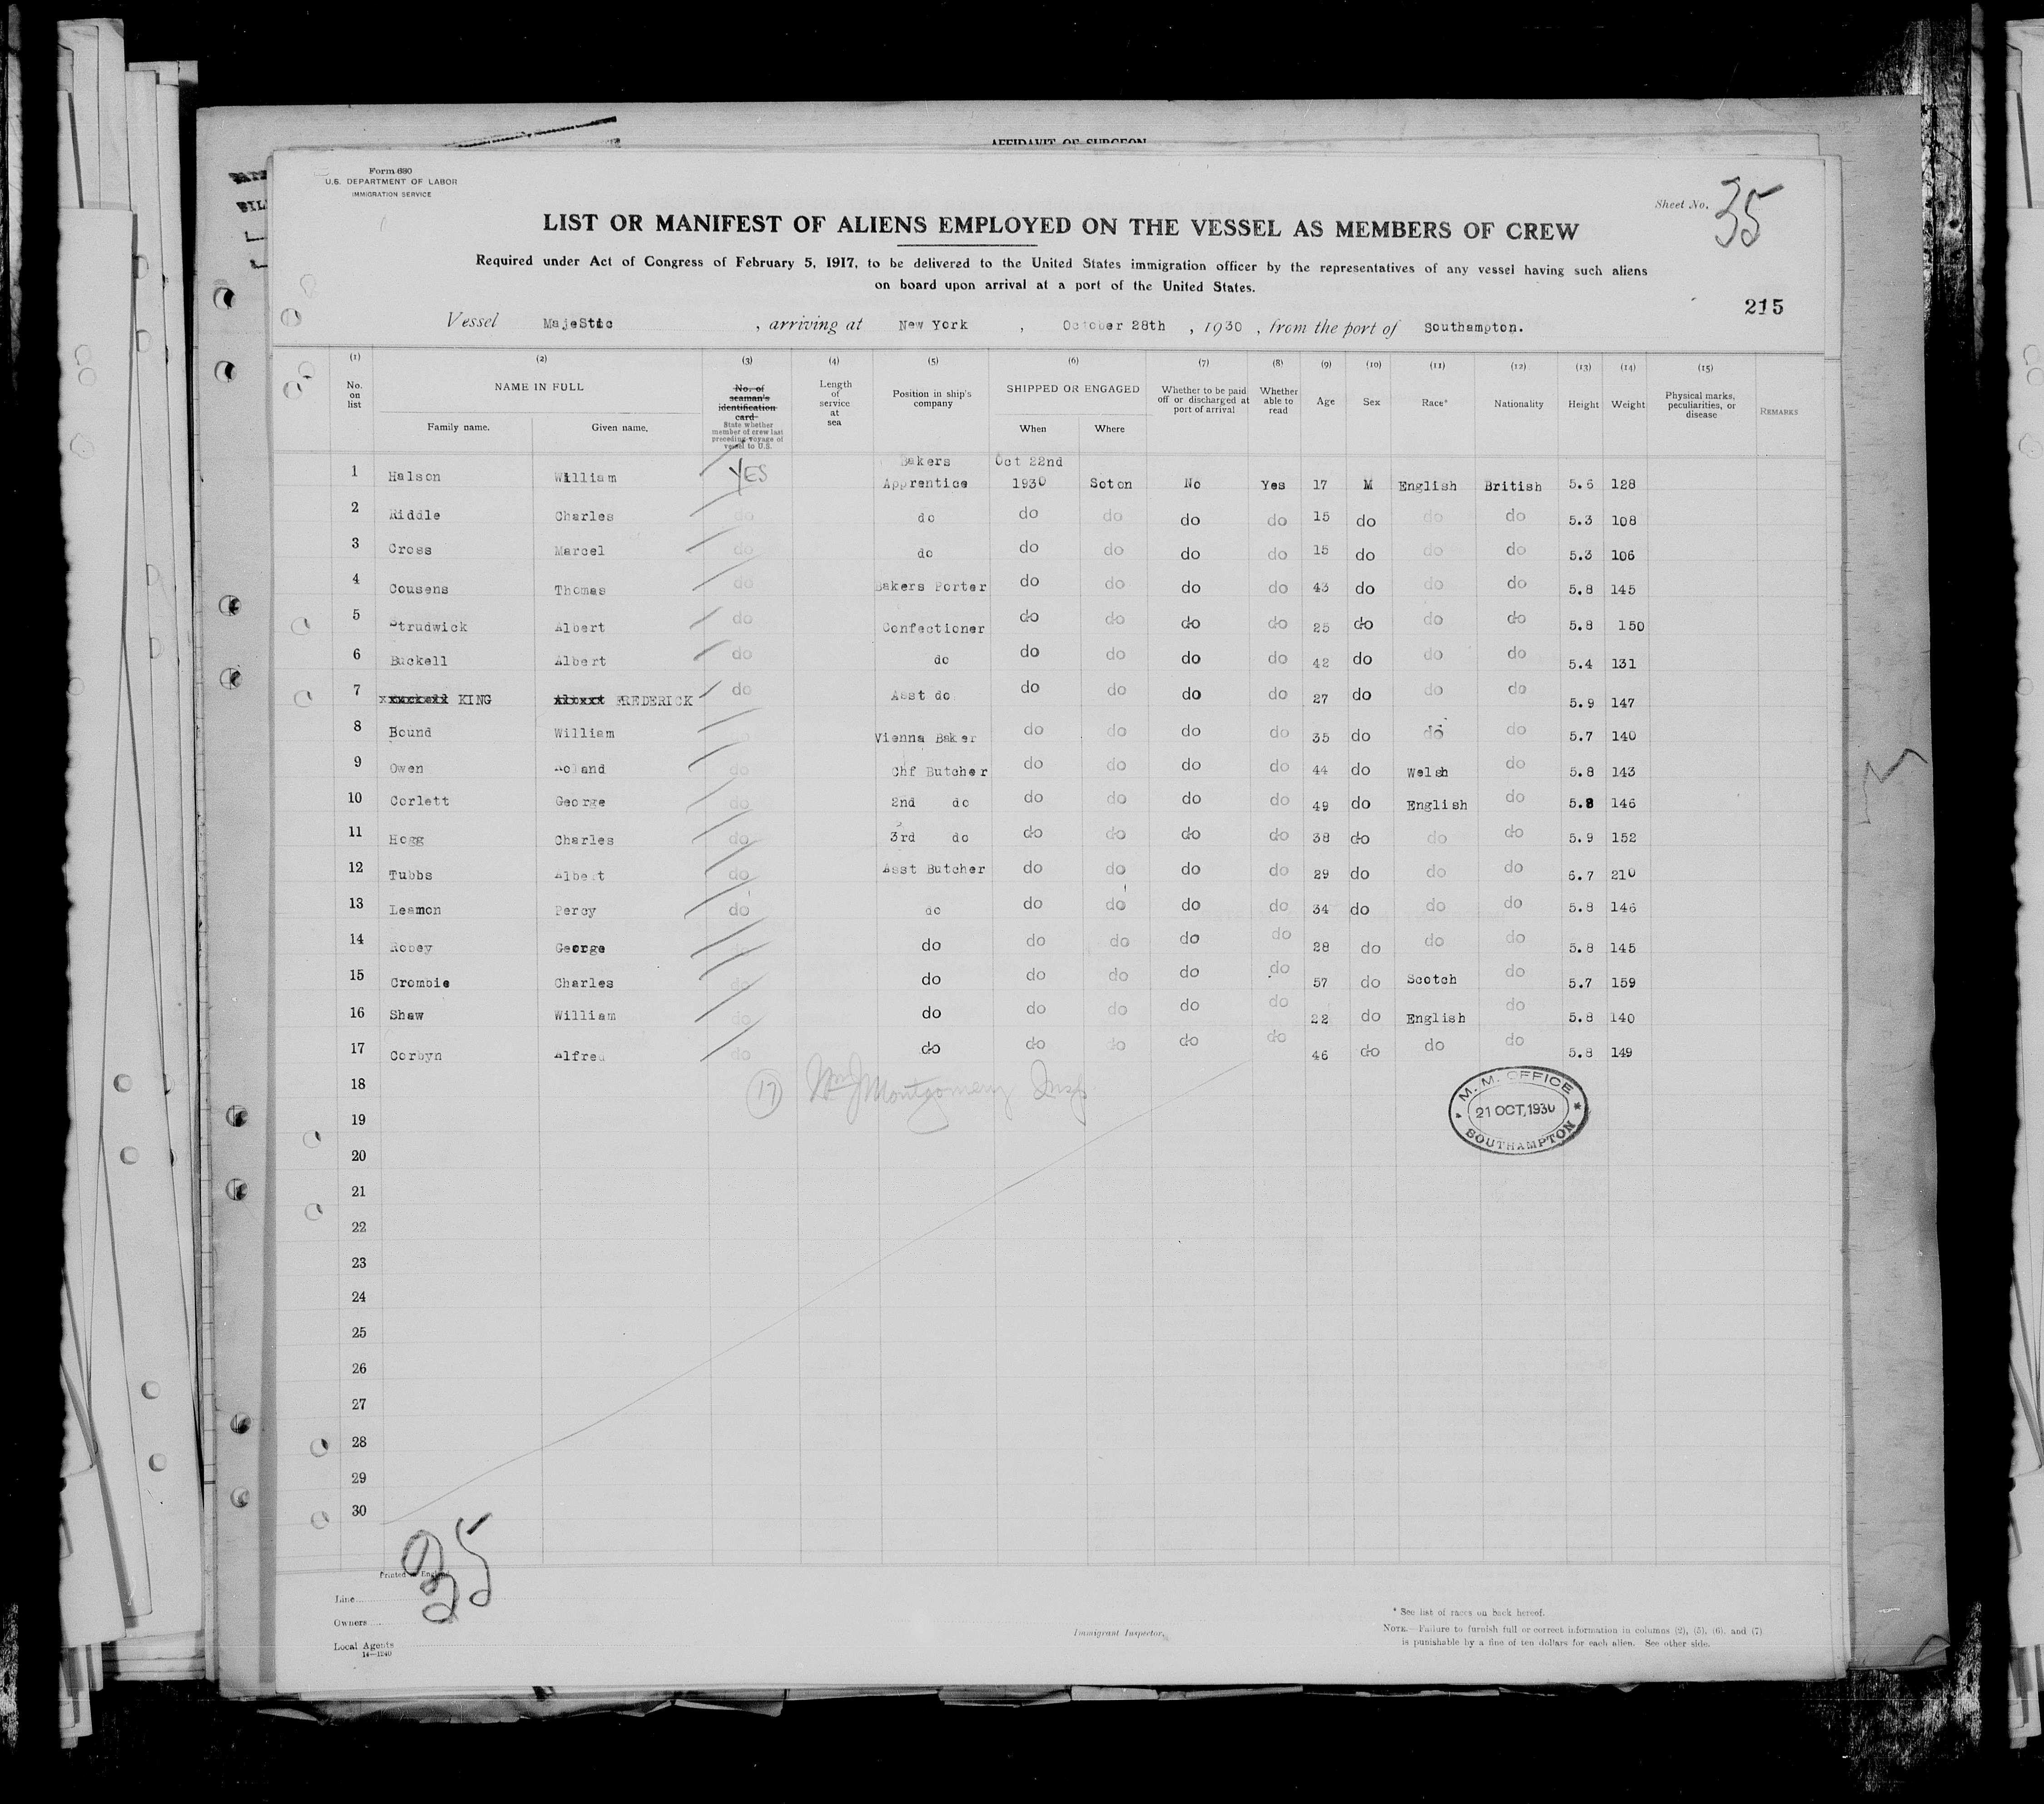 AFFIDAVIT OF SURGEON
Form 680
U.S. DEPARTMENT OF LABOR
IMMIGRATION SERVICE
Sheet No. 35
LIST OR MANIFEST OF ALIENS EMPLOYED ON THE VESSEL AS MEMBERS OF CREW
Required under Act of Congress of February 5, 1917, to be delivered to the United States immigration officer by the representatives of any vessel having such aliens
on board upon arrival at a port of the United States.
215
Vessel MajeStic , arriving at New York , October 28th , 1930 , from the port of Southampton.
(1) (2) (3) (4) (5) (6) (7) (8) (9) (10) (11) (12) (13) (14) (15)
No. on list NAME IN FULL Family name. Given name. No. of seaman's identification card State whether member of crew last preceding voyage of vessel to U.S. Length of service at sea Position in ship's company SHIPPED OR ENGAGED When Where Whether to be paid off or discharged at port of arrival Whether able to read Age Sex Race* Nationality Height Weight Physical marks, peculiarities, or disease REMARKS
Bakers Oct 22nd
1 Halson William YES Apprentice 1930 Soton No Yes 17 M English British 5.6 128
2 Riddle Charles do do do do do do 15 do do do 5.3 108
3 Cross Marcel do do do do do do 15 do do do 5.3 106
4 Cousens Thomas do Bakers Porter do do do do 43 do do do 5.8 145
5 Strudwick Albert do Confectioner do do do do 25 do do do 5.8 150
6 Buckell Albert do do do do do do 42 do do do 5.4 131
7 KING FREDERICK do Asst do do do do do 27 do do do 5.9 147
8 Bound William do Vienna Baker do do do do 35 do do do 5.7 140
9 Owen Roland do Chf Butcher do do do do 44 do Welsh do 5.8 143
10 Corlett George do 2nd do do do do do 49 do English do 5.8 146
11 Hogg Charles do 3rd do do do do do 38 do do do 5.9 152
12 Tubbs Albert do Asst Butcher do do do do 29 do do do 6.7 210
13 Leamon Percy do do do do do do 34 do do do 5.8 146
14 Robey George do do do do do do 28 do do do 5.8 145
15 Crombie Charles do do do do do do 57 do Scotch do 5.7 159
16 Shaw William do do do do do do 22 do English do 5.8 140
17 Corbyn Alfred do do do do do do 46 do do do 5.8 149
18 17 Wm J Montgomery Insp
M. M. OFFICE
21 OCT, 1930
SOUTHAMPTON
19
20
21
22
23
24
25
26
27
28
29
30
35
Printed in England
Line
Owners
Local Agents
14—1240
Immigrant Inspector.
* See list of races on back hereof.
NOTE.—Failure to furnish full or correct information in columns (2), (5), (6), and (7)
is punishable by a fine of ten dollars for each alien. See other side.